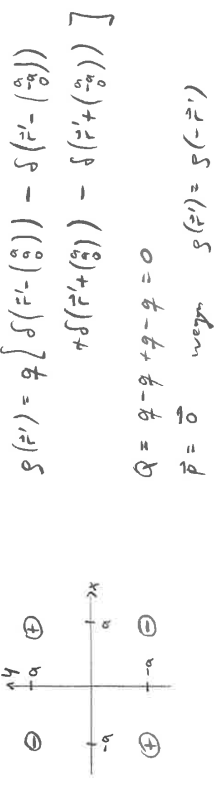 y
⊖ a ⊕
-a a x
⊕ -a ⊖
ρ(r⃗') = q [ δ(r⃗' - (a a 0)) - δ(r⃗' - (a -a 0))
+ δ(r⃗' + (a a 0)) - δ(r⃗' + (a -a 0)) ]
Q = q - q + q - q = 0
p⃗ = 0⃗ wegen ρ(r⃗') = ρ(-r⃗')